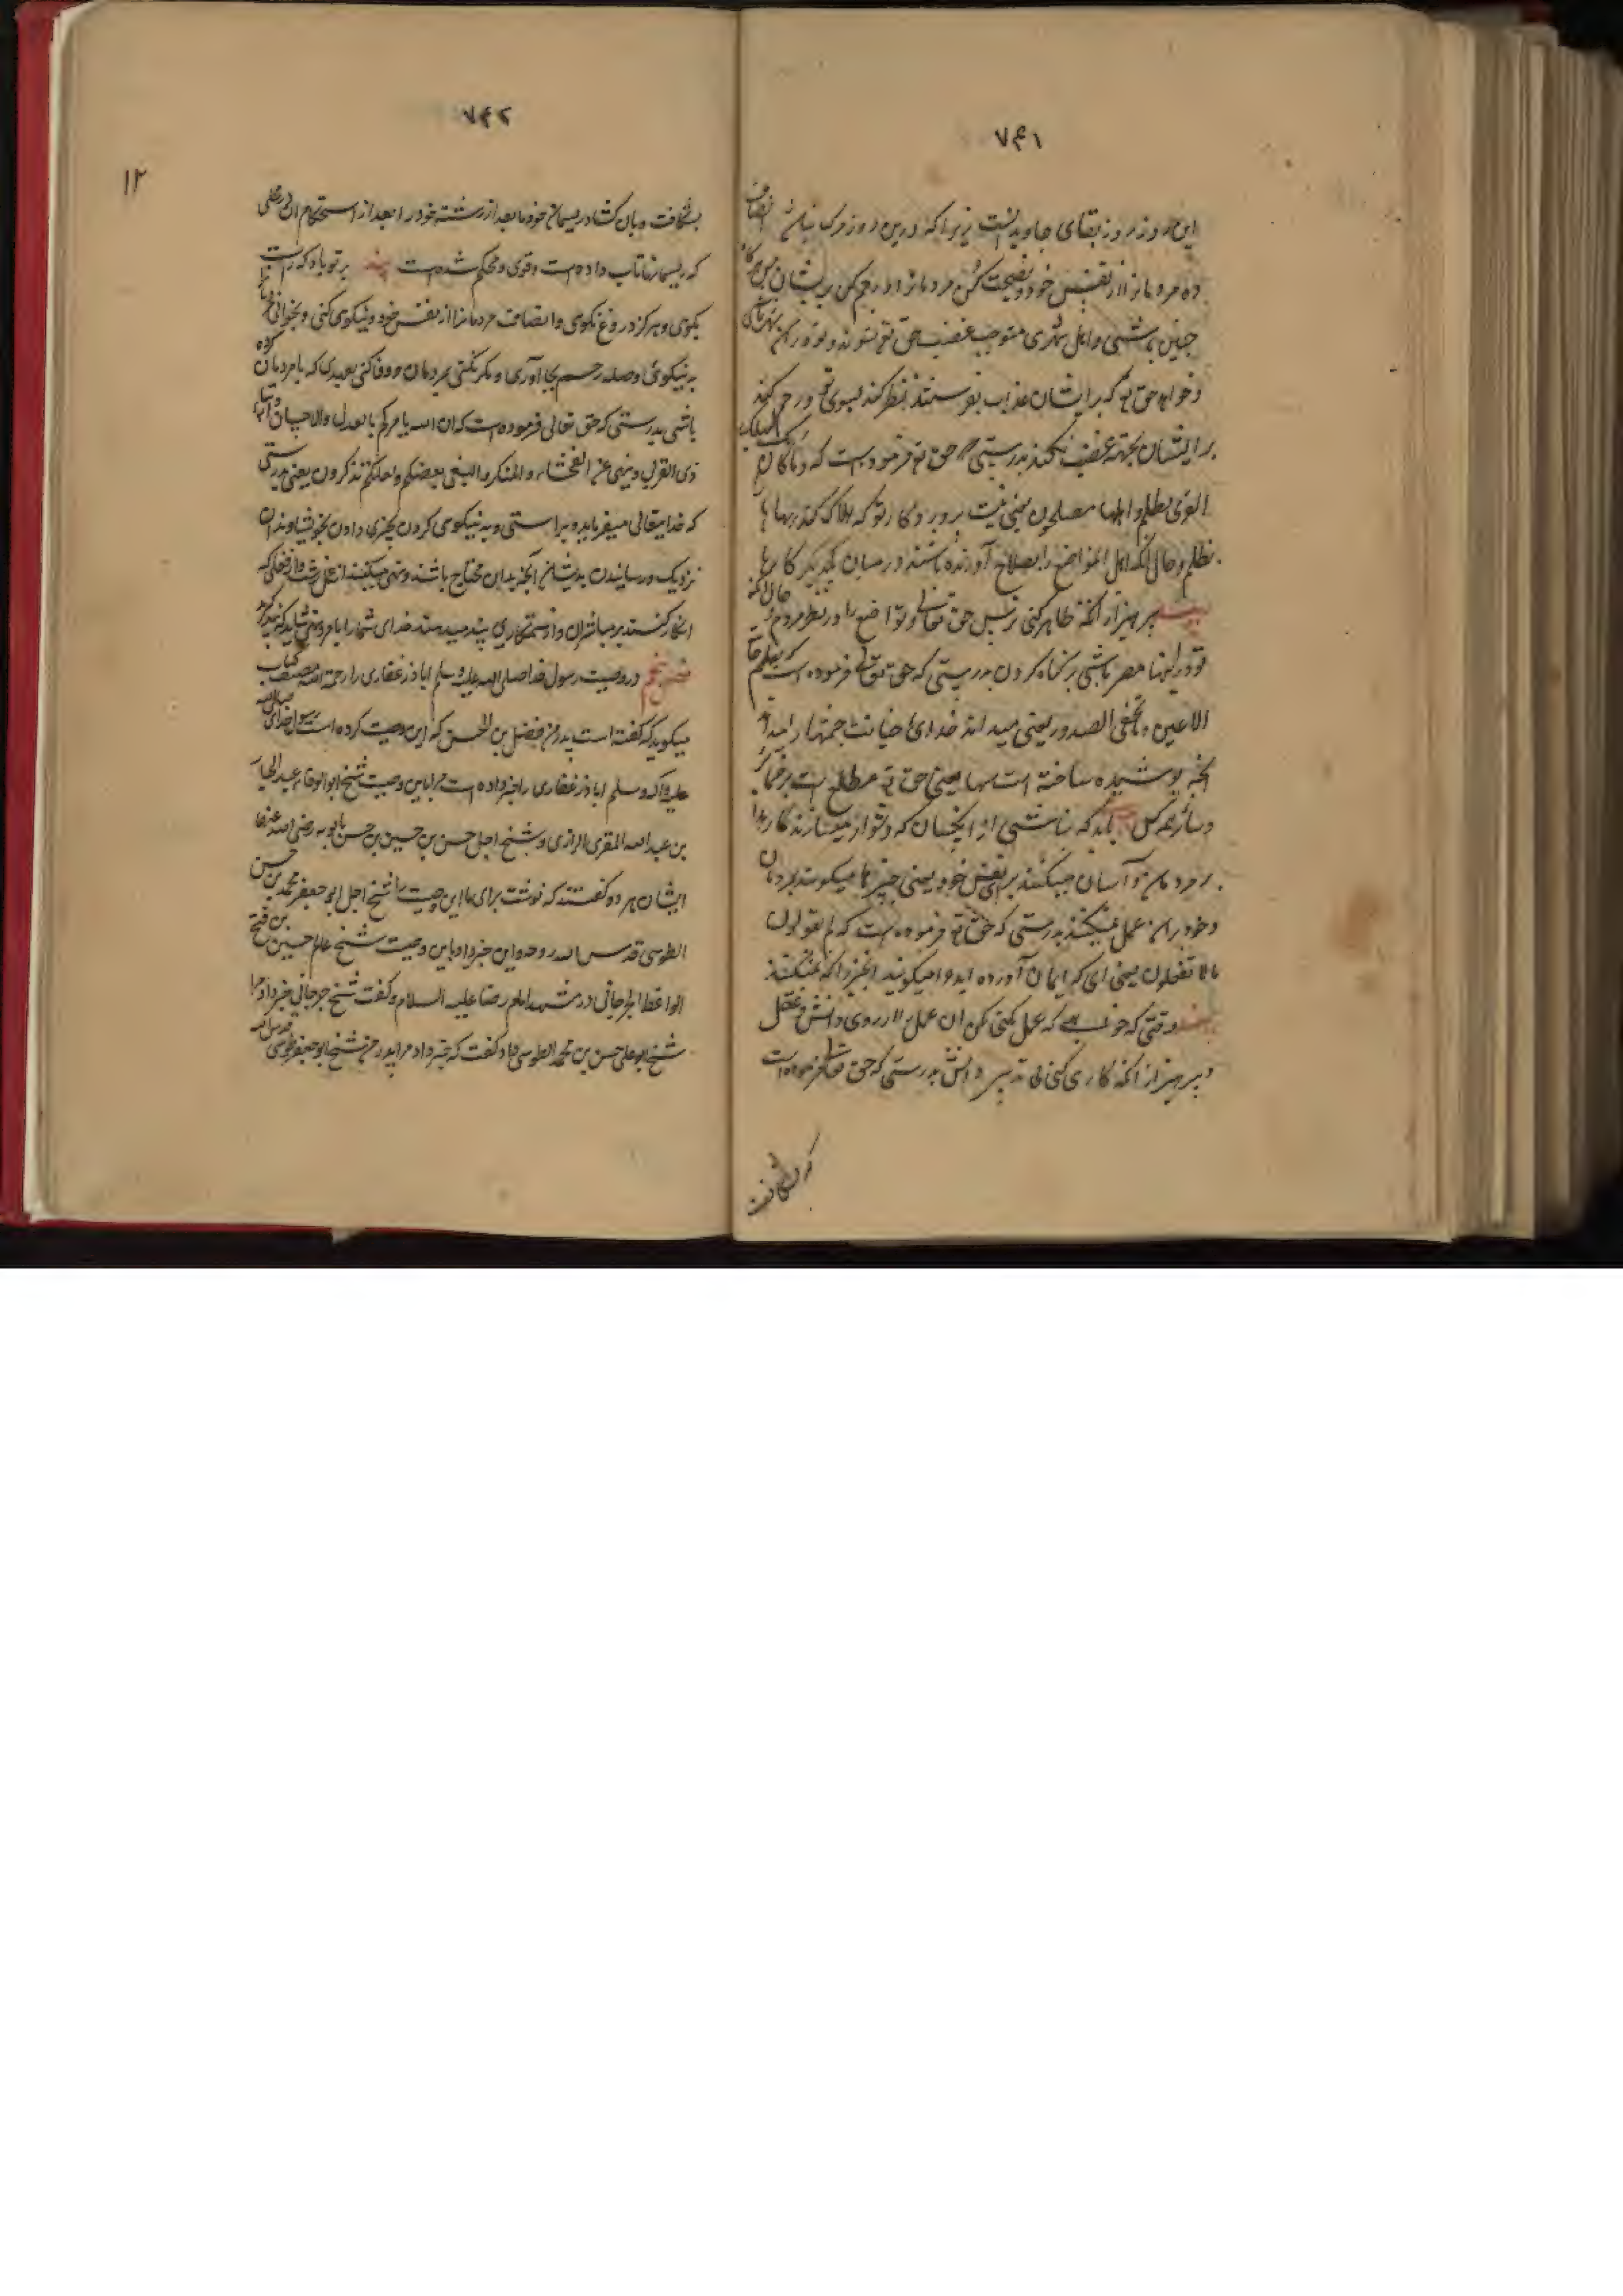 ۷۶۱
این روز روز بقای جاوید نیست زیرا که درین روز مرک نیست انصاف
ده مردمانرا از نفس خود و نصیحت کن مردمانرا و رحم کن بر ایشان پس هرگاه
چنین باشی و اهل شهری مستوجب غضب حق تع شوند و تو در آن شهر باشی
و خواهد حق تع که بر ایشان عذاب بفرستد نظر کند بسوی تو و رحم کند
بر ایشان بجهة تو غضب نکند بدرستی که حق تع فرموده است که و ما کان ربک لیهلک
القری بظلم و اهلها مصلحون یعنی نیست پروردکار تو که هلاک کند دیهها را
بظلم و حال آنکه اهل آنمواضع را بصلاح آورنده باشند در میان یکدیگر کارها
بپرهیز از آنکه ظاهر کنی ترس حق تعالی و تواضع را در نظر مردم و حال آنکه
تو در نهان مصر باشی بر کناه کردن بدرستی که حق تعالی فرموده است که یعلم خائنة
الاعین و ما تخفی الصدور یعنی میداند خدای خیانت چشمها را و میداند
آنچه پوشیده ساخته است سینها یعنی حق تع مطلع است بر ضمایر
و سرائر همه کس باید که نباشی از آنکسان که دشوار میسازند کار را
بر مردمان و آسان میکنند برای نفس خود یعنی چیزها میکویند بمردمان
و خود بر آن عمل نمیکنند بدرستی که حق تع فرموده است که لم تقولون
ما لا تفعلون یعنی ای که ایمان آورده اید چرا میکویید آنچیز را که نمیکنید
وقتی که خواهی که عمل کنی بکن آن عمل را از روی دانش و عقل
و بپرهیز از آنکه کاری کنی بی تدبیر و دانش بدرستی که حق تعالی فرموده است
که بشکافت
۷۶۲
۱۲
بشکافت و بازکشاد ریسمان خود ما بعد از رشته خود را بعد از استحکام آن
که ریسمانرا تاب داده است و قوی و محکم شده است پند بر تو باد که راست
بکوی و هرکز دروغ نکوی و انصاف مردمانرا از نفس خود و نیکوی کنی و بخوانی مردمانرا
به نیکوی و صله رحم بجا آوری و مکر نکنی بمردمان و وفا کنی بعهدی که با مردمان کرده
باشی بدرستی که حق تعالی فرموده است که ان الله یامرکم بالعدل والاحسان و ایتاء
ذی القربی و ینهی عن الفحشاء والمنکر والبغی یعظکم لعلکم تذکرون یعنی بدرستی
که خدایتعالی میفرماید براستی و به نیکویی کردن و چیزی دادن بخویشاوندان
نزدیک و رسانیدن بدیشان آنچه بدان محتاج باشند و نهی میکند از فعل زشت و از فعلی که
انکار کنند بر مباشر آن و از ستمکاری پند میدهد خدای شمارا بامر و نهی شاید که پند کیرید
فصل پنجم در وصیت رسول خدا صلی الله علیه و سلم اباذر غفاری را رحمة الله مصنف کتاب
میکوید که کفته است پدر من فضل بن الحسن که این وصیت کرده است رسول خدای صلی الله
علیه و آله و سلم اباذر غفاری را خبر داده است مرا باین وصیت شیخ ابو الوفاء عبد الجبار
بن عبد الله المقری الرازی و شیخ اجل حسن بن حسین بن حسن بابویه رضی الله عنهما
ایشان هر دو کفتند که نوشت برای ما این وصیت را شیخ اجل ابو جعفر محمد بن حسن
الطوسی قدس الله روحه و این خبر داد باین وصیت شیخ عالم حسین بن فتح
الواعظ الجرجانی در مشهد امام رضا علیه السلام و کفت شیخ جرجانی خبر داد مرا
شیخ ابو علی حسن بن محمد الطوسی و کفت که خبر داد مرا پدر من شیخ ابو جعفر طوسی قدس الله